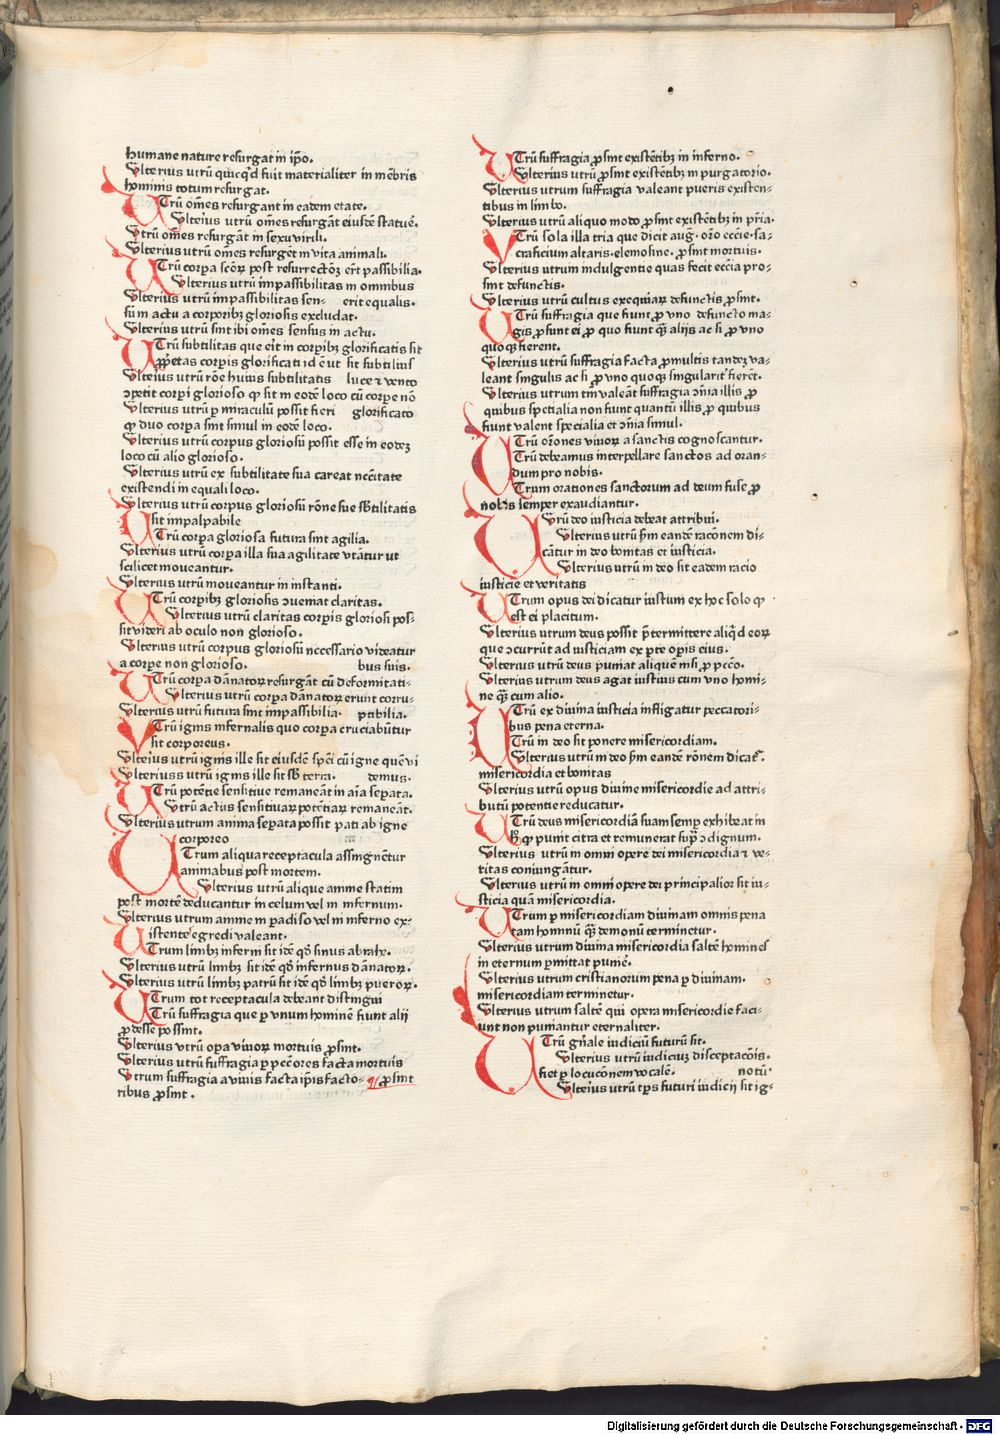 humane nature resurgat in ip̄o.
Vlterius utrū quicq̄d fuit materialiter in mēbris
hominis totum resurgat.
UTrū om̄es resurgant in eadem etate.
Vlterius utrū om̄es resurgāt eiusdē staturē.
Vtrū om̄es resurgāt in sexu virili.
Vlterius utrū om̄es resurgēt in vita animali.
UTrū corꝑa sc̄oꝝ post resurrectōꝫ er̄t passibilia.
Vlterius utrū impassibilitas in omnibus
Vlterius utrū impassibilitas sen- erit equalis.
sū in actu a corporibꝫ gloriosis excludat.
Vlterius utrū sint ibi om̄es sensus in actu.
UTrū subtilitas que er̄t in corꝑibꝫ glorificatis sit
ꝓp̄etas corꝑis glorificati id ē ut sit subtilius
Vlterius utrū rōe huius subtilitatis luce ⁊ vento
ꝯpetit corꝑi glorioso ꝙ sit in eodē loco cū corꝑe nō
Vlterius utrū ꝑ miraculū possit fieri glorificato
ꝙ duo corꝑa sint simul in eodē loco.
Vlterius utrū corpus gloriosū possit esse in eodeꝫ
loco cū alio glorioso.
Vlterius utrū ex subtilitate sua careat nc̄citate
existendi in equali loco.
Vlterius utrū corpus gloriosū rōne sue sb̄tilitatis
sit impalpabile
UTrū corꝑa gloriosa futura sint agilia.
Vlterius utrū corꝑa illa sua agilitate vtātur ut
scilicet moueantur.
Vlterius utrū moueantur in instanti.
UTrū corꝑibꝫ gloriosis ꝯueniat claritas.
Vlterius utrū claritas corꝑis gloriosi pos-
sit videri ab oculo non glorioso.
Vlterius utrū corpus gloriosū necessario videatur
a corꝑe non glorioso. bus suis.
UTrū corꝑa dānatoꝝ resurgāt cū deformitati-
Vlterius utrū corꝑa dānatoꝝ erunt corru-
Vlterius utrū futura sint impassibilia. ptibilia.
VTrū ignis infernalis quo corꝑa cruciabūtur
sit corporeus.
Vlterius utrū ignis ille sit eiusdē spēi cū igne quē vi
Vlteriuss utrū ignis ille sit sb̄ terra. demus.
UTrū potētie sensitiue remaneāt in aīa seꝑata.
Vtrū actus sensitiuaꝝ potētiaꝝ remaneāt.
Vlterius utrum anima seꝑata possit pati ab igne
corporeo
UTrum aliqua receptacula assingnētur
animabus post mortem.
Vlterius utrū alique anime statim
post mortē deducantur in celum vel in infernum.
Vlterius utrum anime in ꝑadiso vel in inferno ex-
istente egredi valeant.
UTrum limbꝫ inferni sit idē qd̄ sinus abrahe.
Vlterius utrū limbꝫ sit idē qd̄ infernus dānatoꝝ.
Vlterius utrū limbꝫ patrū sit idē qd̄ limbꝫ pueroꝝ.
UTrum tot receptacula debeant distingui
UTrū suffragia que ꝑ vnum hominē fiunt alij
ꝓdesse possint.
Vlterius utrū oꝑa viuoꝝ mortuis ꝓsint.
Vlterius utrū suffragia ꝑ pecc̄ores facta mortuis
Vtrum suffragia a viuis facta ip̄is facto- ꝓsint
ribus ꝓsint.
UTrū suffragia ꝓsint existētibꝫ in inferno.
Vlterius utrū ꝓsint existētibꝫ in purgatorio.
Vlterius utrum suffragia valeant pueris existen-
tibus in limbo.
Vlterius utrū aliquo modo ꝓsint existētibꝫ in pr̄ia.
VTrū sola illa tria que dicit aug. or̄o ecc̄ie. sa-
craficium altaris. elemosine. ꝓsint mortuis.
Vlterius utrum indulgentie quas fecit ecc̄ia pro-
sint defunctis.
Vlterius utrū cultus exequiaꝝ defunctis ꝓsint.
UTrū suffragia que fiunt ꝓ vno defuncto ma-
gis ꝓsunt ei ꝓ quo fiunt q̄ꝫ alijs ac si ꝓ vno
quoqꝫ fierent.
Vlterius utrū suffragia facta ꝓ multis tandeꝫ va-
leant singulis ac si ꝓ vno quoqꝫ singularit̄ fierēt.
Vlterius utrum tm̄ valeāt suffragia ꝯīa illis ꝓ
quibus specialia non fiunt quantū illis ꝓ quibus
fiunt valent specialia et ꝯīa simul.
UTrū or̄ones viuoꝝ a sanctis cognoscantur.
UTrū debeamus interpellare sanctos ad oran-
dum pro nobis.
UTrum orationes sanctorum ad deum fuse ꝓ
nobis semper exaudiantur.
UTrū deo iusticia debeat attribui.
Vlterius utrū ẜm eandē racōnem di-
cātur in deo bonitas et iusticia.
Vlterius utrū in deo sit eadem racio
iusticie et veritatis
UTrum opus dei dicatur iustum ex hoc solo ꝙ
est ei placitum.
Vlterius utrum deus possit p̄termittere aliq̄d eoꝝ
que ꝯcurrūt ad iusticiam ex ꝑte oꝑis eius.
Vlterius utrū deus puniat aliquē nisi ꝓ pcc̄o.
Vlterius utrum deus agat iustius cum vno homi-
ne q̄ꝫ cum alio.
UTrū ex diuina iusticia infligatur peccatori-
bus pena eterna.
UTrū in deo sit ponere misericordiam.
Vlterius utrū in deo ẜm eandē rōnem dicat᷑
misericordia et bonitas
Vlterius utrū opus diuine misericordie ad attri-
butū potentie reducatur.
UTrū deus misericordiā suam semꝑ exhibeat in
hꝭ ꝙ punit citra et remunerat supͣ ꝯdignum.
Vlterius utrū in omni opere dei misericordia ⁊ ve-
ritas coniungātur.
Vlterius utrū in omni opere dei principalior sit iu-
sticia quā misericordia.
UTrum ꝑ misericordiam diuinam omnis pena
tam hominū q̄ꝫ demonū terminetur.
Vlterius utrum diuina misericordia saltē homines
in eternum ꝑmittat puniē.
Vlterius utrum cristianorum pena ꝑ diuinam.
misericordiam terminetur.
Vlterius utrum saltē qui opera misericordie faci-
unt non puniantur eternaliter.
UTrū gn̄ale iudiciū futurū sit.
Vlterius utrū iudiciuꝫ disceptacōis.
fiet ꝑ locucōnem vocalē. notū.
Vlterius utrū tp̄s futuri iudicij sit ig-
Digitalisierung gefördert durch die Deutsche Forschungsgemeinschaft - DFG